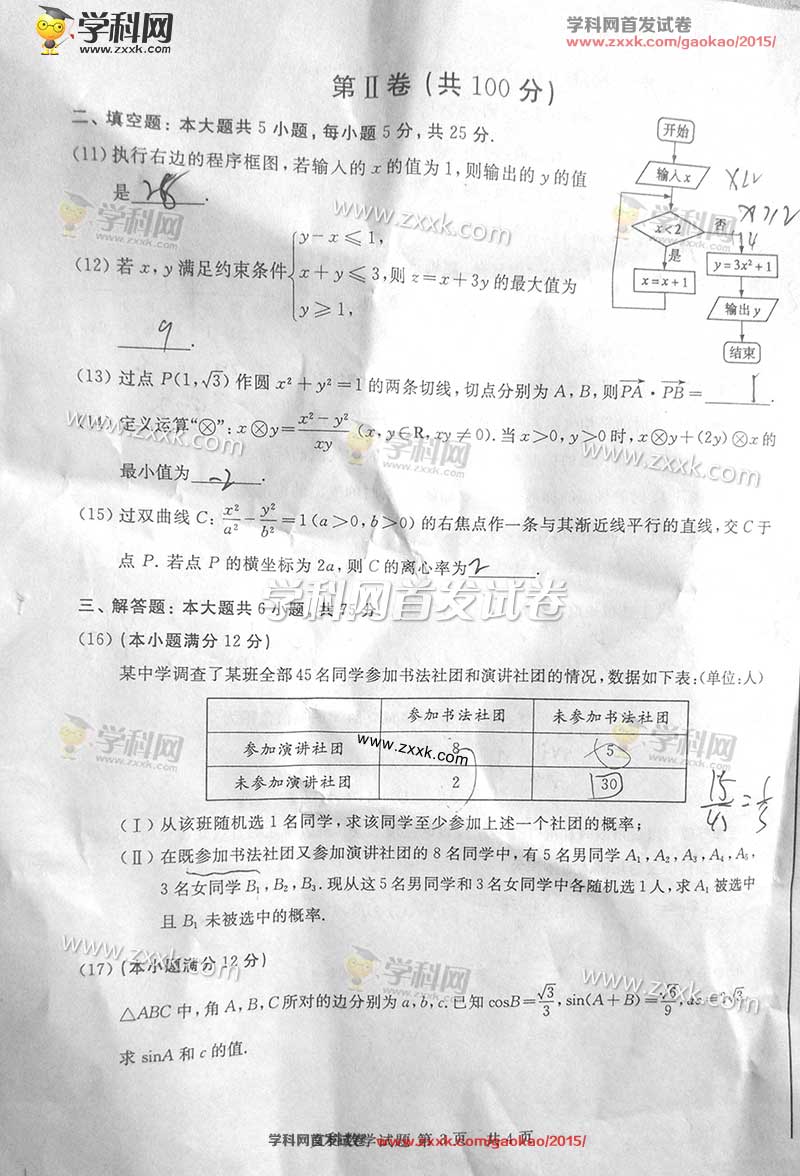 学科网
www.zxxk.com
学科网首发试卷
www.zxxk.com/gaokao/2015/
第Ⅱ卷(共100分)
二、填空题：本大题共5小题,每小题5分,共25分.
(11)执行右边的程序框图,若输入的x的值为1,则输出的y的值
是 28 .
开始
输入x
x<2
否
是
x=x+1
y=3x²+1
输出y
结束
(12)若x,y满足约束条件
y-x≤1,
x+y≤3,
y≥1,
则z=x+3y的最大值为
9 .
(13)过点P(1,√3)作圆x²+y²=1的两条切线,切点分别为A,B,则PA·PB= .
定义运算"⊗":x⊗y=(x²-y²)/xy (x,y∈R,xy≠0).当x>0,y>0时,x⊗y+(2y)⊗x的
最小值为 -2 .
(15)过双曲线C: x²/a²-y²/b²=1(a>0,b>0)的右焦点作一条与其渐近线平行的直线,交C于
点P.若点P的横坐标为2a,则C的离心率为 2 .
学科网首发试卷
三、解答题：本大题共6小题,共75分
(16)(本小题满分12分)
某中学调查了某班全部45名同学参加书法社团和演讲社团的情况,数据如下表:(单位:人)
参加书法社团 未参加书法社团
参加演讲社团 8 5
未参加演讲社团 2 30
15/45=1/3
(Ⅰ)从该班随机选1名同学,求该同学至少参加上述一个社团的概率;
(Ⅱ)在既参加书法社团又参加演讲社团的8名同学中,有5名男同学A₁,A₂,A₃,A₄,A₅,
3名女同学B₁,B₂,B₃.现从这5名男同学和3名女同学中各随机选1人,求A₁被选中
且B₁未被选中的概率.
(17)(本小题满分12分)
△ABC中,角A,B,C所对的边分别为a,b,c.已知cosB=√3/3,sin(A+B)=√6/9,
求sinA和c的值.
学科网首发试卷 www.zxxk.com/gaokao/2015/
试题 第3页 共4页